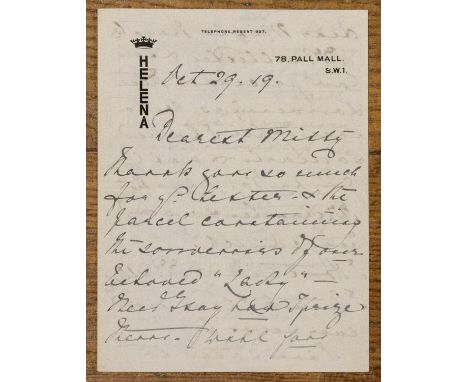 TELEPHONE, REGENT 827.
HELENA
78, PALL MALL.
S.W.1.
Oct 29. 19.
Dearest Missy
Thank you so much
for yr. letter - & the
parcel containing
the souvenirs of our
beloved "Lady" —
Need I say how I prize
them - Will you